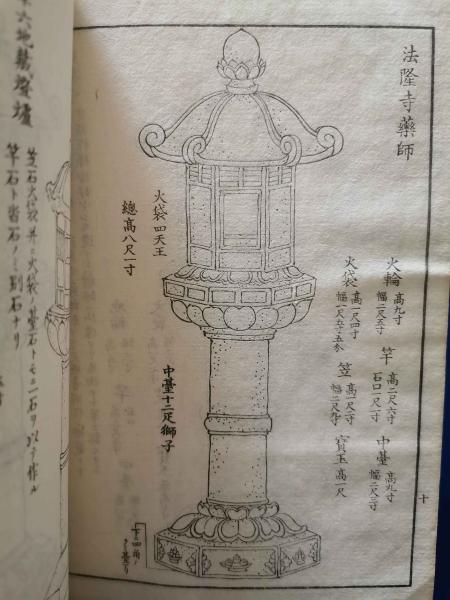 法隆寺藥師
火輪 高九寸 幅二尺五寸
竿 高二尺六寸 石口一尺一寸
中臺 高九寸 幅二尺三寸
火袋 高一尺四寸
笠 高一尺寸
寶玉 高一尺
火袋四天王
總高八尺一寸
中臺十二疋獅子
十
六地藏燈爐
笠石火袋并ニ火袋ノ臺石トモニ一石ヲ以テ作ル
竿石ト
別石ナリ